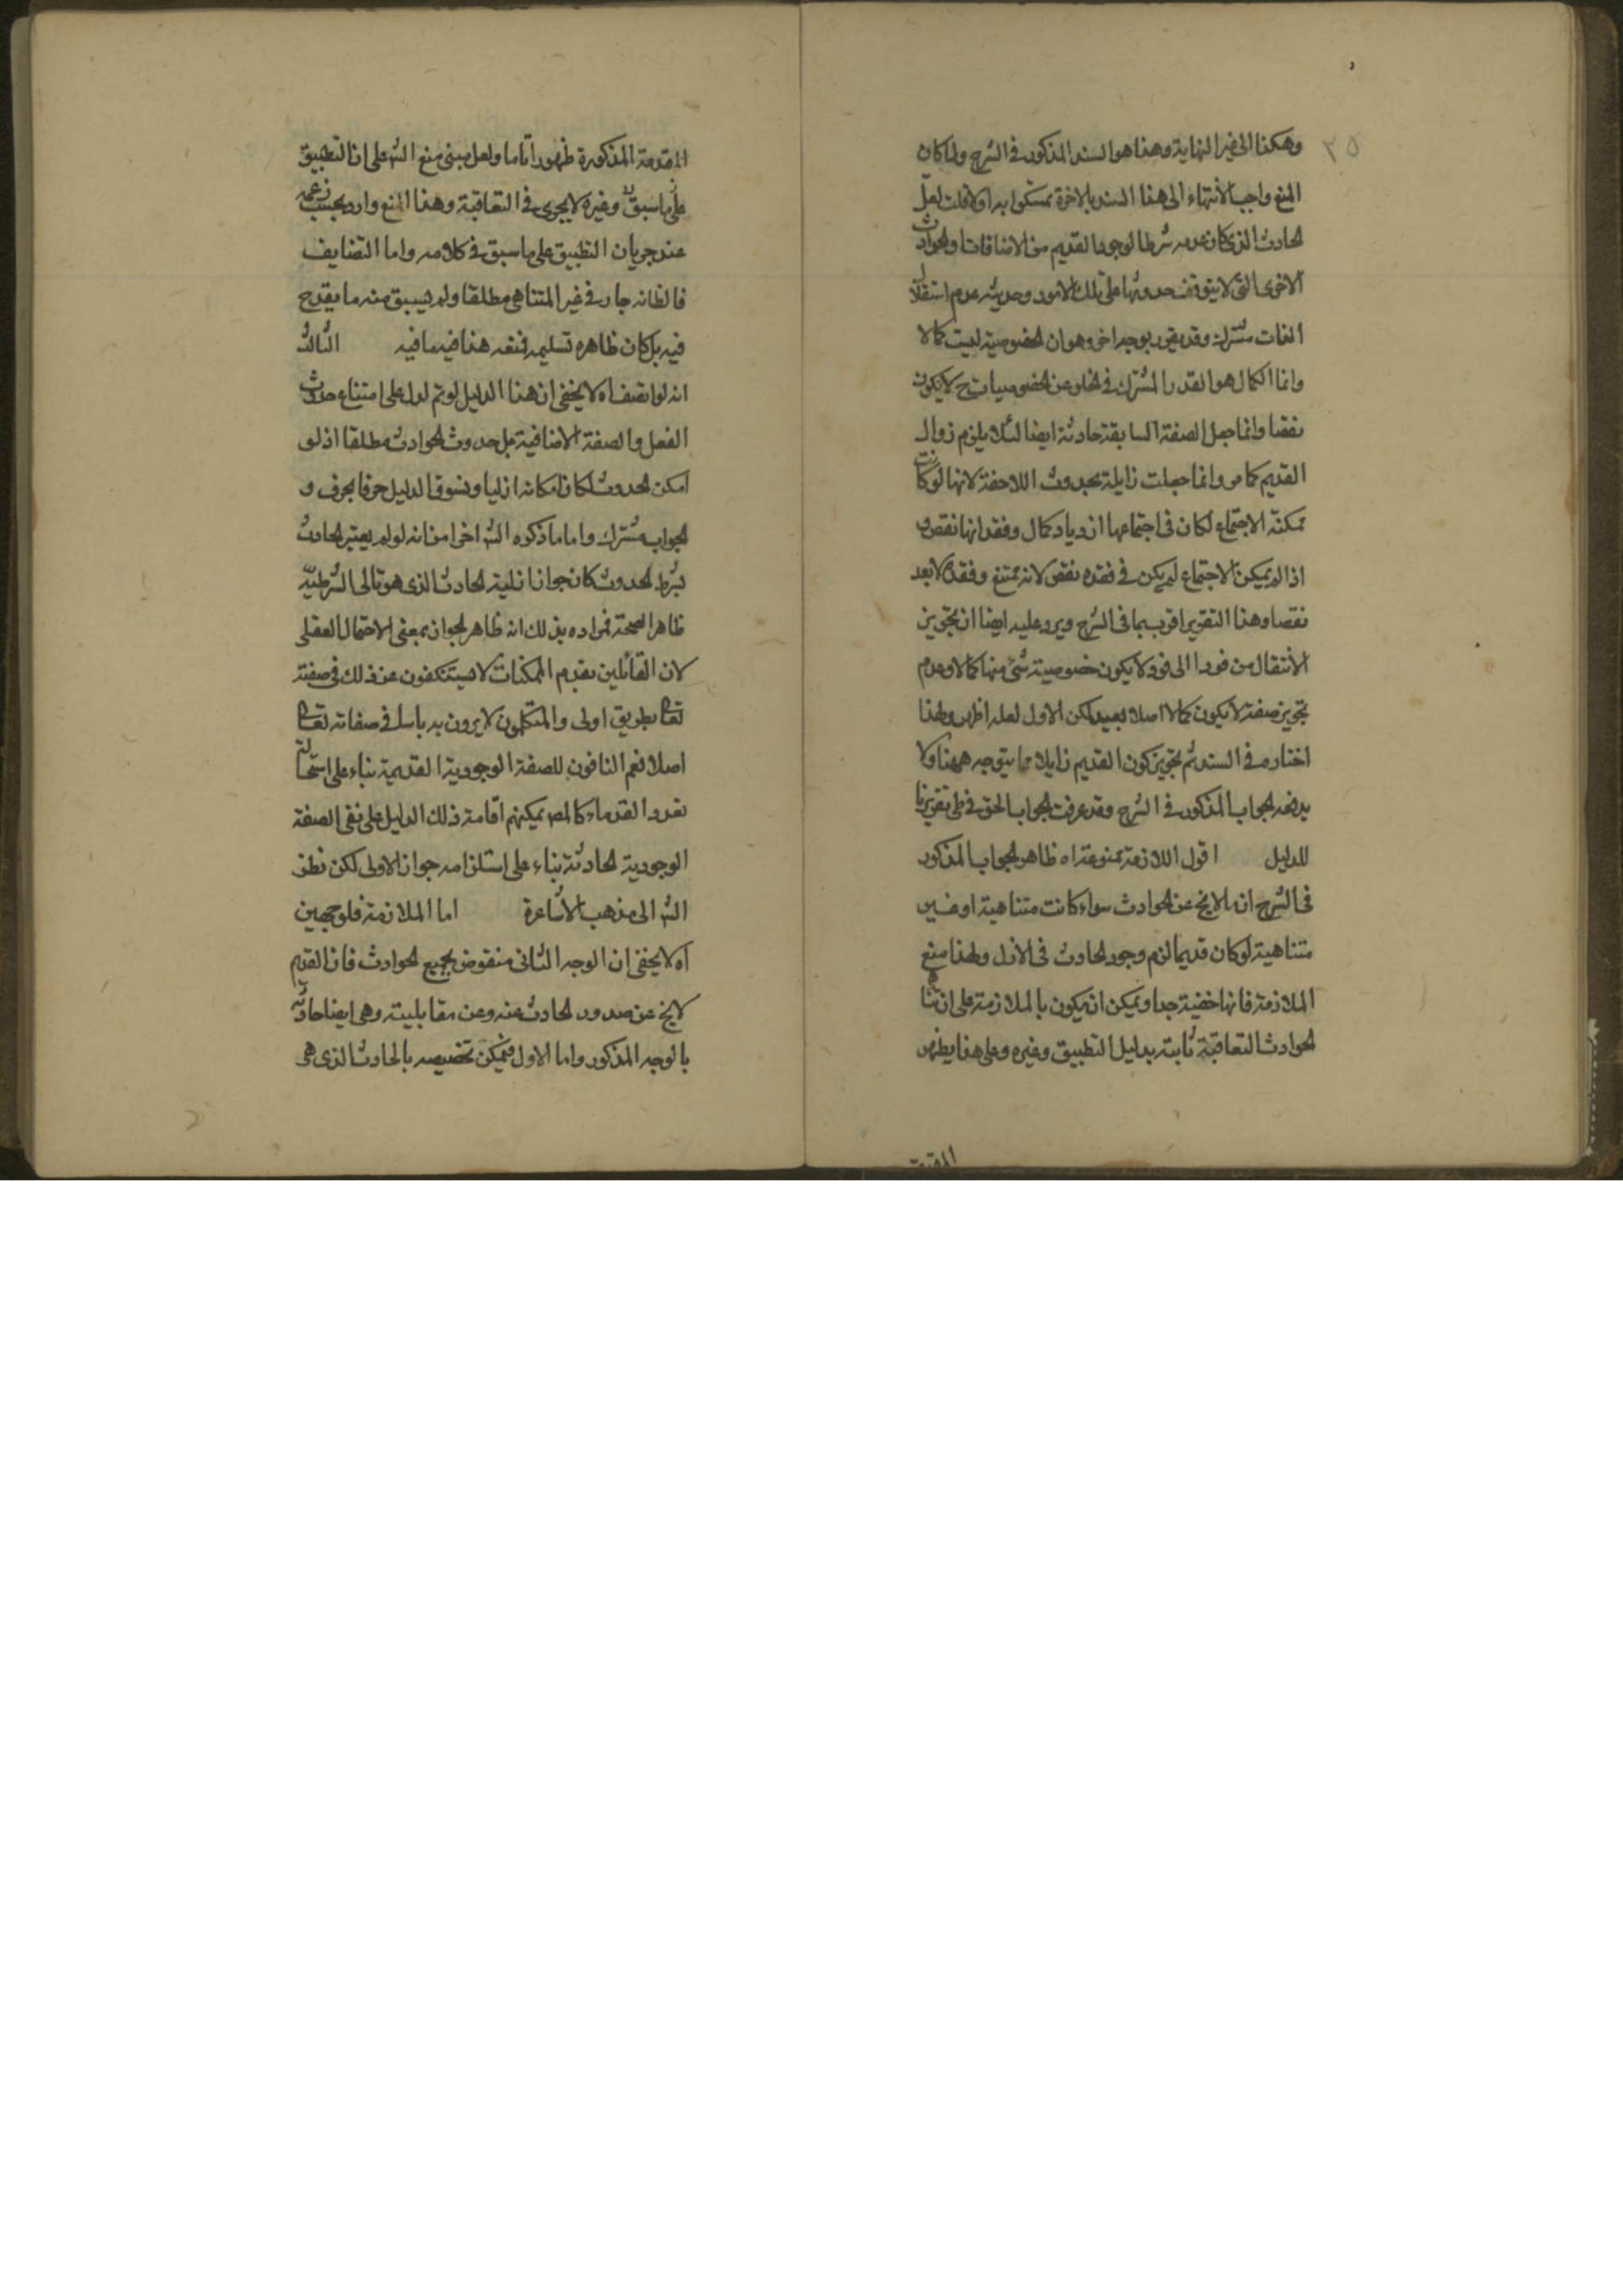 ٣٥
وهكذا الى غير النهاية وهذا هو السند المذكور فى الشرح ولما كان
المنع واجب الانتهاء الى هذا السند بالاخرة تمسكوا به اولا قلت لعل
الحادث الذى كان عدمه شرطا لوجود القديم من الاضافات والحوادث
الاخرى التى لا يتوقف حدوثها على تلك الامور وحديث عدم استقلال
الذات مشترك وقد يقرر بوجه اخر وهو ان الخصوصية ليست كمالا
وانما الكمال هو القدر المشترك فالخلو عن الخصوصيات ح لا يكون
نقصا وانما جعل الصفة السابقة حادثة ايضا لئلا يلزم زوال
القديم كما مر وانما جعلت زايلة بحدوث اللاحقة لانها لو كانت
ممكنة الاجتماع لكان فى اجتماعها ازدياد كمال وفقدانها نقص و
اذا لم يمكن الاجتماع لم يكن فى فقده نقص لانه ممتنع وفقده لا يعد
نقصا وهذا التقرير اقرب بما فى الشرح ويرد عليه ايضا ان تجويز
الانتقال من فرد الى فرد لا يكون خصوصية شئ منها كمالا وعدم
تجويز صفة لا يكون كمالا اصلا بعيد لكن الاول لعله اظهر ولهذا
اختاره فى السند ثم تجويز كون القديم زايلا مما يتوجه ههنا ولا
يدفعه الجواب المذكور فى الشرح وقد عرفت الجواب الحق فى طى تقريرنا
للدليل اقول اللازمة ممنوعة اه ظاهر الجواب المذكور
فى الشرح ان ما لا يخ عن الحوادث سواء كانت متناهية او غير
متناهية لو كان قديما لزم وجود الحادث فى الازل ولهذا منع
الملازمة فانها خفية جدا ويمكن ان يكون بالملازمة على ان تناهى
الحوادث المتعاقبة ثابتة بدليل التطبيق وغيره وعلى هذا يظهر
المقدمة
المقدمة المذكورة ظهورا تاما ولعل مبنى منع الش على ان التطبيق
على ما سبق وغيره لا يجرى فى المتعاقبة وهذا المنع وارد بحسب زعمه
عند جريان التطبيق على ما سبق فى كلامه واما التضايف
فالظانه جار فى غير المتناهى مطلقا ولم يسبق منه ما يقدح
فيه بل كان ظاهره تسليمه فمنعه هذا فيه ما فيه الثالث
انه لو اتصف اه لا يخفى ان هذا الدليل لو تم لدل على امتناع حدوث
الفعل والصفة الاضافية بل حدوث الحوادث مطلقا اذ لو
امكن الحدوث لكان امكانه ازليا ونسوق الدليل حرفا بحرف و
الجواب مشترك واما ما ذكره الش اخرا من انه لو لم يعتبر الحادث
بشرط الحدوث كان جواز ازلية الحادث الذى هو تالى الشرطية
ظاهر الصحة فمراده بذلك انه ظاهر الجواز بمعنى الاحتمال العقلى
لان القائلين بقدم الممكنات لا يستنكفون عن ذلك فى صفته
تعالى بطريق اولى والمتكلمون لا يرون به باسا فى صفاته تعالى
اصلا نعم النافون للصفة الوجودية القديمة بناء على استحالة
تعدد القدماء كالمص يمكنهم اقامة ذلك الدليل على نفى الصفة
الوجودية الحادثة بناء على استلزامه جواز الاولى لكن نظر
الش الى مذهب الاشاعرة اما الملازمة فلوجهين
اه لا يخفى ان الوجه الثانى منقوض بجميع الحوادث فان القديم
لا يخ عن صدور الحادث عنه وعن مقابليته وهى ايضا حادثة
بالوجه المذكور واما الاول فيمكن تخصيصه بالحادث الذى هى